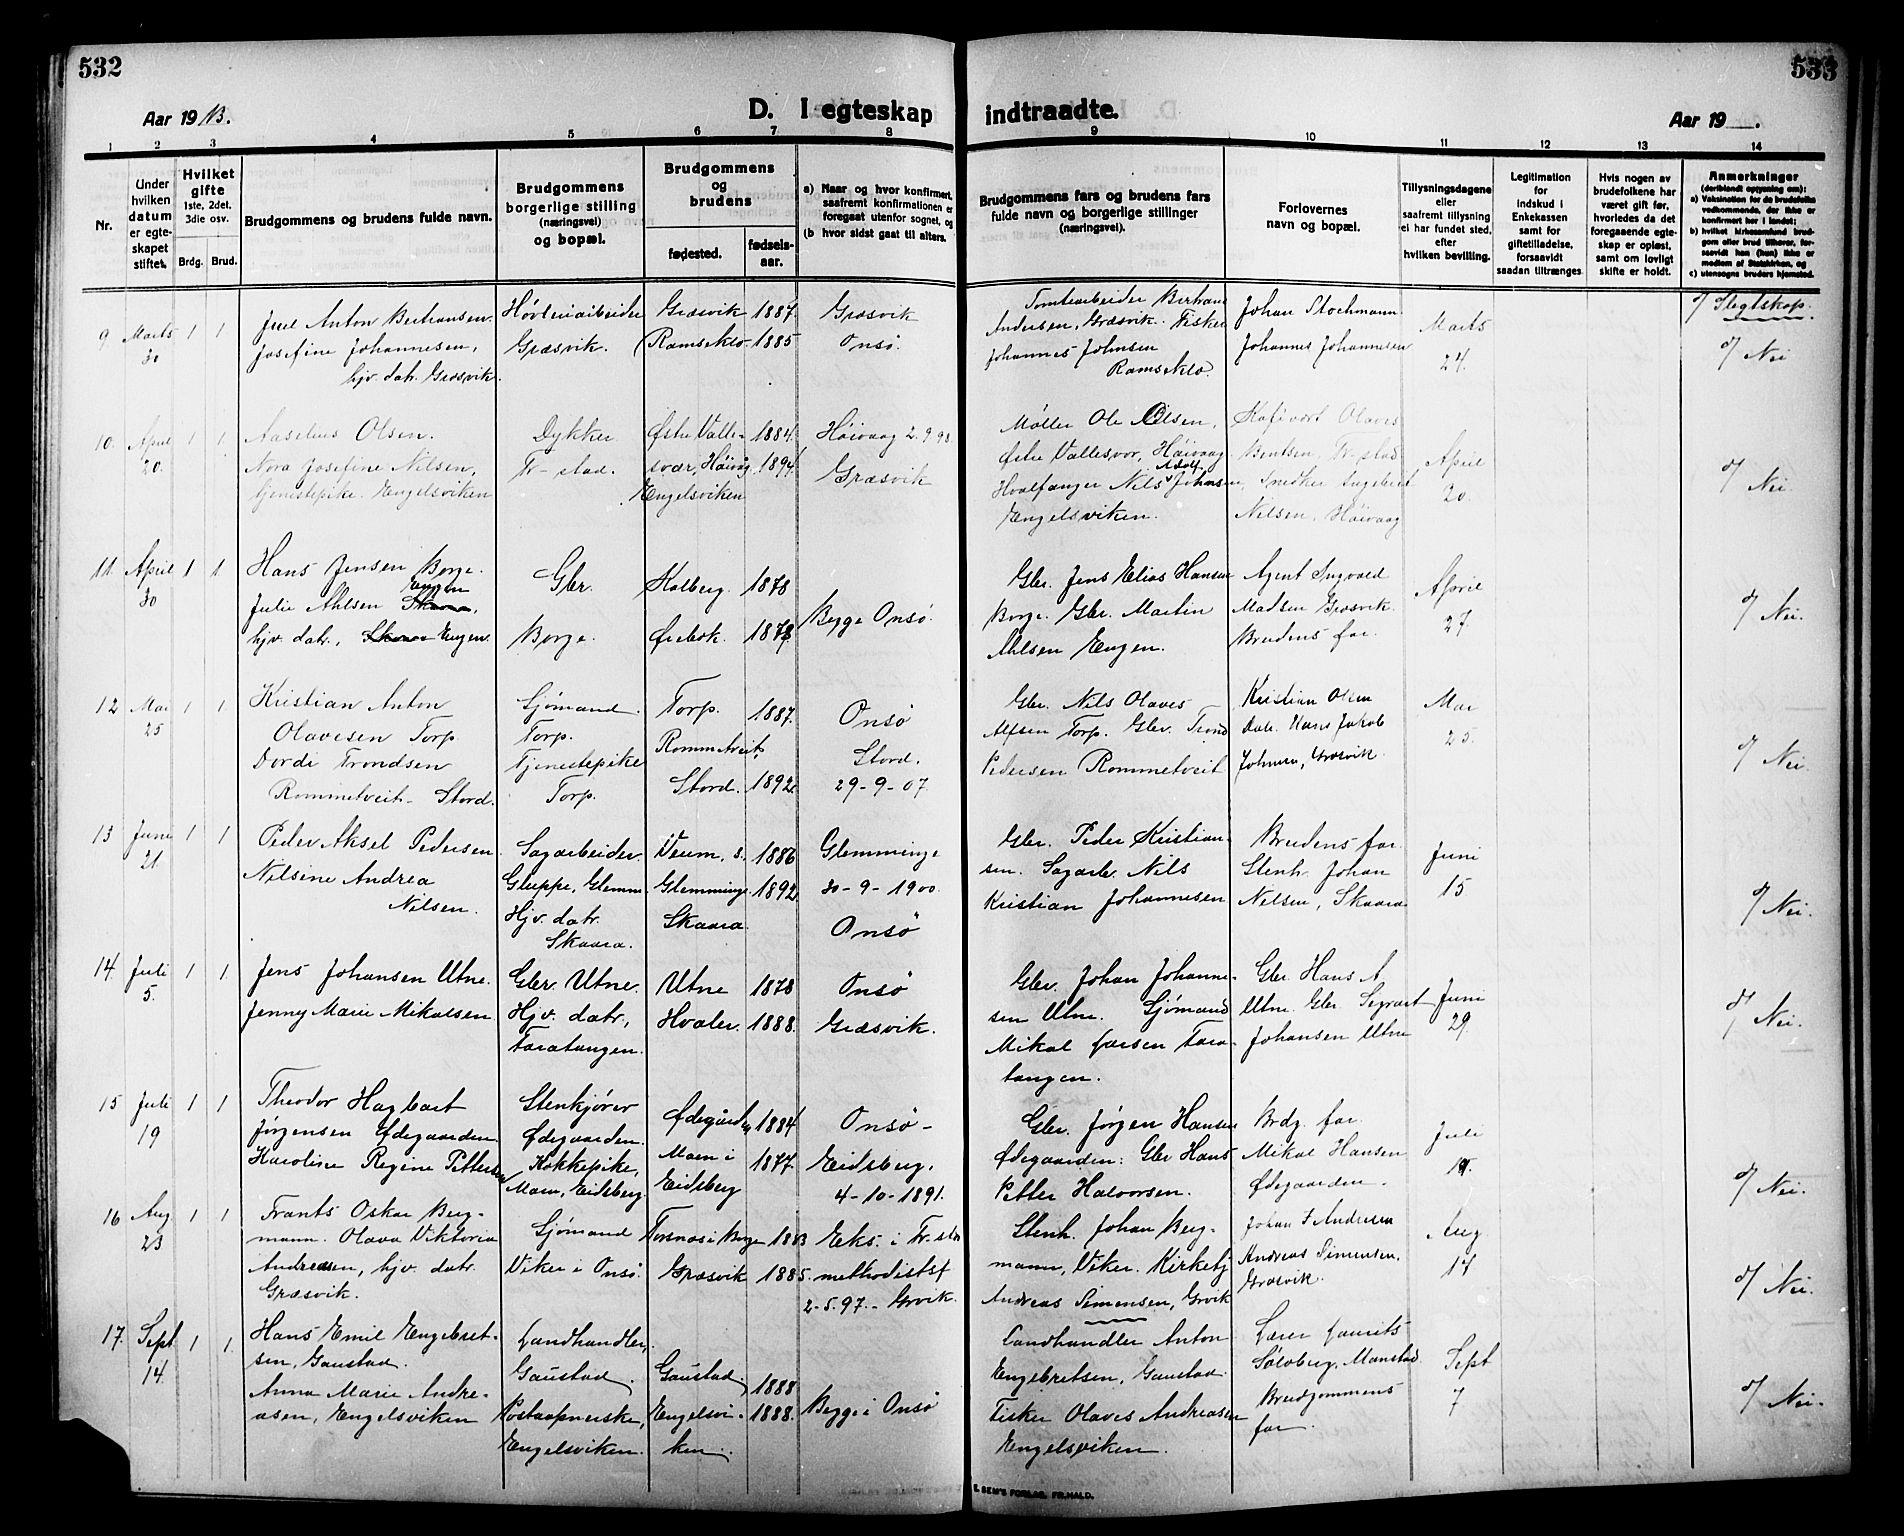 532
533
Aar 1913.
D. I egteskap indtraadte.
Aar 19__.
1 2 3 4 5 6 7 8 9 10 11 12 13 14
Nr.
Under hvilken datum er egteskapet stiftet.
Hvilket gifte 1ste, 2det, 3die osv.
Brdg. Brud.
Brudgommens og brudens fulde navn.
Brudgommens borgerlige stilling (næringsvei) og bopæl.
Brudgommens og brudens
fødested.
fødselsaar.
a) Naar og hvor konfirmert, saafremt konfirmationen er foregaat utenfor sognet, og
(b hvor sidst gaat til alters.
Brudgommens fars og brudens fars fulde navn og borgerlige stillinger (næringsvei).
Forlovernes navn og bopæl.
Tillysningsdagene eller saafremt tillysning ei har fundet sted, efter hvilken bevilling.
Legitimation for indskud i Enkekassen samt for giftetilladelse, forsaavidt saadan tiltrænges
Hvis nogen av brudefolkene har været gift før, hvorledes da det foregaaende egteskap er opløst, samt om lovligt skifte er holdt.
Anmerkninger (deriblandt oplysning om):
a) Vaksination for de brudefolks vedkommende, der ikke er konfirmert her i landet;
b) hvilket kirkesamfund brudgom eller brud tilhører, forsaavidt han (hun) ikke er medlem af Statskirken, og
c) utensogns bruders hjemsted.
9 Marts 30 1 1
Juel Anton Bertransen.
Josefine Johannesen,
hjv. datr. Græsvik.
Høvleriarbeider
Græsvik.
Græsvik 1887.
Ramseklo 1885
Græsvik
Onsø.
Tomtearbeider Bertran
Andersen, Græsvik. Fisker
Johannes Johnsen
Ramseklo.
Johan Stochmann
Johannes Johannesen
Marts
24.
Slegtskap.
Nei
10. April 20. 1 1.
Aaselius Olsen.
Nora Josefine Nilsen,
tjenestepike. Engelsviken
Dykker.
Fr-stad.
Østre Valle- 1884.
svær, Høivåg 1894.
Engelsviken
Høivaag 2.9.98.
Græsvik
Møller Ole Olsen,
Østre Vallesvær, Høivaag
Adolf
Hvalfanger Nils Johnsen,
Engelsviken.
Kafévert Olaves
Bentsen, Fr-stad
Snedker Ingebret
Nilsen, Høivaag
April
20.
Nei.
11. April 30 1 1.
Hans Jensen Borge.
Engen
Julie Ahlsen Skaara,
hjv. datr., Skaara Engen.
Gbr.
Borge.
Kolberg. 1878
Ørebek. 1878
Begge Onsø.
Gbr. Jens Elias Hansen
Borge. Gbr. Martin
Ahlsen Engen.
Agent Ingvald
Madsen Græsvik.
Brudens far.
April
27
Nei.
12 Mai 25 1 1
Kristian Anton
Olavesen Torp.
Dordi Trondsen
Rommetveit - Stord.
Sjømand.
Torp.
Tjenestepike
Torp.
Torp. 1887.
Rommetveit,
Stord. 1892.
Onsø
Stord.
29-9-07.
Gbr. Nils Olaves
Alfsen Torp. Gbr. Trond
Pedersen Rommetveit
Kristian Olsen
Dale. Hans Jakob
Johnsen, Græsvik.
Mai
25.
Nei.
13 Juni 21. 1 1
Peder Aksel Pedersen
Nilsine Andrea
Nilsen.
Sagarbeider.
Gluppe, Glemm.
Hjv. datr.
Skaara.
Veum, s. 1886
Glemminge 1892
Skaara
Glemminge
30-9-1900.
Onsø
Gbr. Peder Kristian-
sen. Sagarb. Nils
Kristian Johannesen
Brudens far.
Stenh. Johan
Nilsen, Skaara
Juni
15
Nei.
14 Juli 5. 1 1
Jens Johansen Utne.
Jenny Marie Mikalsen.
Gbr. Utne.
Hjv. datr,
Taratangen.
Utne 1878
Hvaler. 1888.
Onsø
Græsvik.
Gbr. Johan Johanne-
sen Utne. Sjømand
Mikal Larsen Tara-
tangen.
Gbr. Hans A.
Utne. Gbr. Sigvart
Johansen Utne
Juni
29.
Nei.
15 Juli 19 1 1
Theodor Hagbart
Jørgensen Ødegaarden
Karoline Regine Pettersen
Stenkjører
Ødegaarden.
Kokkepike,
Moen, Eidsberg.
Ødegården 1884
Moen i 1877.
Eidsberg
Onsø-
Eidsberg.
4-10-1891.
Gbr. Jørgen Hansen
Ødegaarden: Gbr Hans
Petter Halvorsen.
Brdg. far.
Mikal Hansen
Ødegaarden.
Juli
Nei.
16 Aug 23 1 1
Frants Oskar Berg-
mann. Olava Viktoria
Andreasen, hjv. datr.
Græsvik.
Sjømand
Viker i Onsø.
Torsnes i Borge 1883
Græsvik 1885.
Eks. i Fr.stad
methodistsf
2-5.97.- Grvik.
Stenh. Johan Berg-
mann, Viker. Kirketj
Andreas Simensen, Grvik
Johan F Andresen
Andreas Simensen.
Græsvik.
Aug.
17
Nei.
17. Sept 14. 1 1.
Hans Emil Engebret-
sen, Gaustad.
Anna Marie Andre-
asen, Engelsviken
Landhandler,
Gaustad.
Postaapnerske,
Engelsviken.
Gaustad. 1888
Engelsvi- 1888.
ken.
Begge i Onsø
Landhandler Anton
Engebretsen, Gaustad.
Fisker Olaves Andreasen
Engelsviken.
Lærer Laurits
Solberg, Manstad
Brudgommens
far.
Sept
7
Nei.
E. SEM'S FORLAG, FR.HALD.